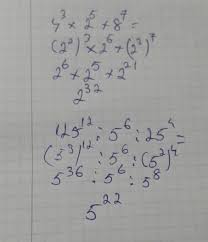 4³ × 2⁵ × 8⁷ =
(2²)³ × 2⁵ × (2³)⁷
2⁶ × 2⁵ × 2²¹
2³²
125¹² : 5⁶ : 25⁴ =
(5³)¹² : 5⁶ : (5²)⁴
5³⁶ : 5⁶ : 5⁸
5²²